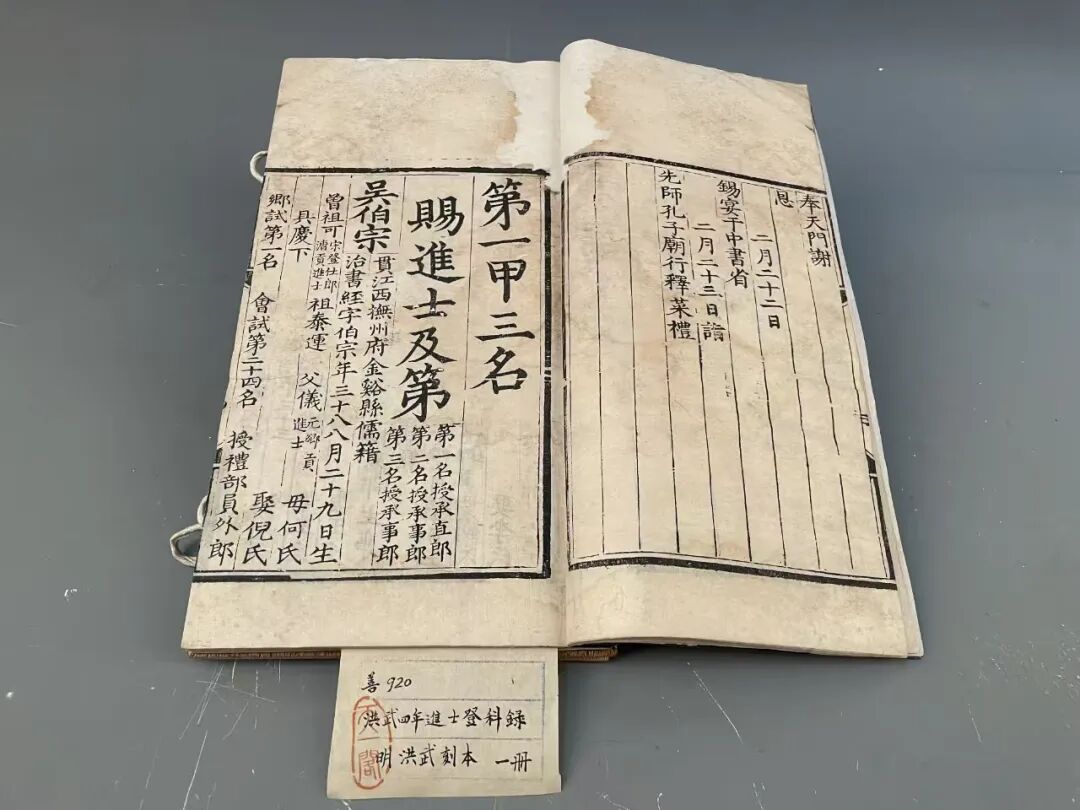 奉天門謝
恩
二月二十二日
錫宴于中書省
二月二十三日詣
先師孔子廟行釋菜禮
第一甲三名
賜進士及第
第一名授承直郎
第二名授承事郎
第三名授承事郎
吳伯宗 貫江西撫州府金谿縣儒籍
治書經字伯宗年三十八八月二十九日生
曾祖可 宋登仕郎 漕貢進士 祖泰運 父儀 元鄉貢進士 母何氏
具慶下 娶倪氏
鄉試第一名 會試第二十四名 授禮部員外郎
善920
洪武四年進士登科録
明洪武刻本 一冊
天一閣